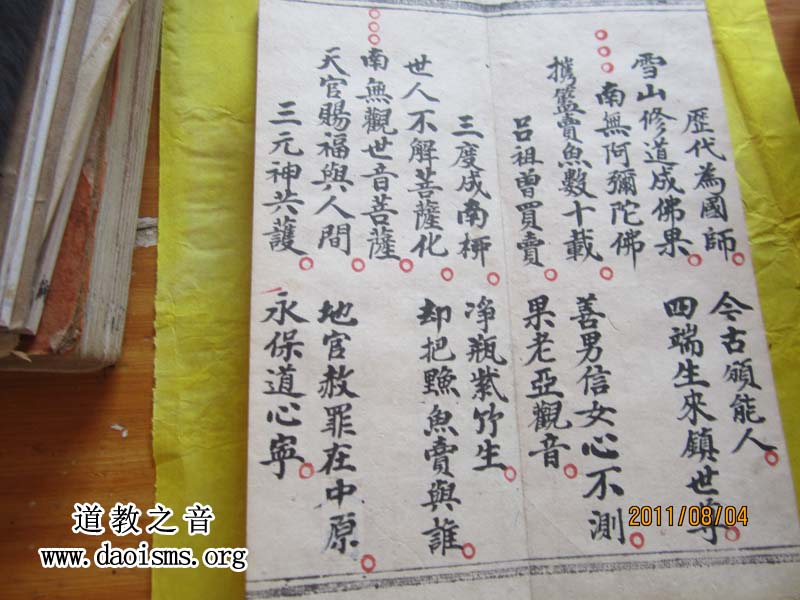 歷代為國師 今古能人
雪山修道成佛果 四端生來鎮世尊
南無阿彌陀佛
攜籃賣魚數十載 善男信女心不測
呂祖曾買賣 果老亞觀音
三度成南 净瓶紫竹生
世人不解菩薩化 却把魚賣與誰
南無觀世音菩薩
天官賜福與人間 地官赦罪在中原
三元神共護 永保道心寧
2011/08/04
道教之音
www.daoisms.org